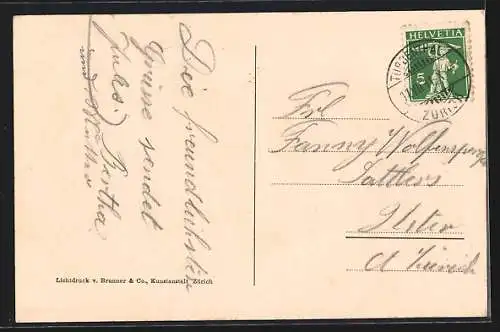 Die freundlichsten
Grüsse sendet
Jules. Bertha
und Mutter
HELVETIA
5
ZÜRICH
Frl
Fanny Wolfensperger
Sattlers
Uster
Ct Zürich
Lichtdruck v. Brunner & Co., Kunstanstalt, Zürich